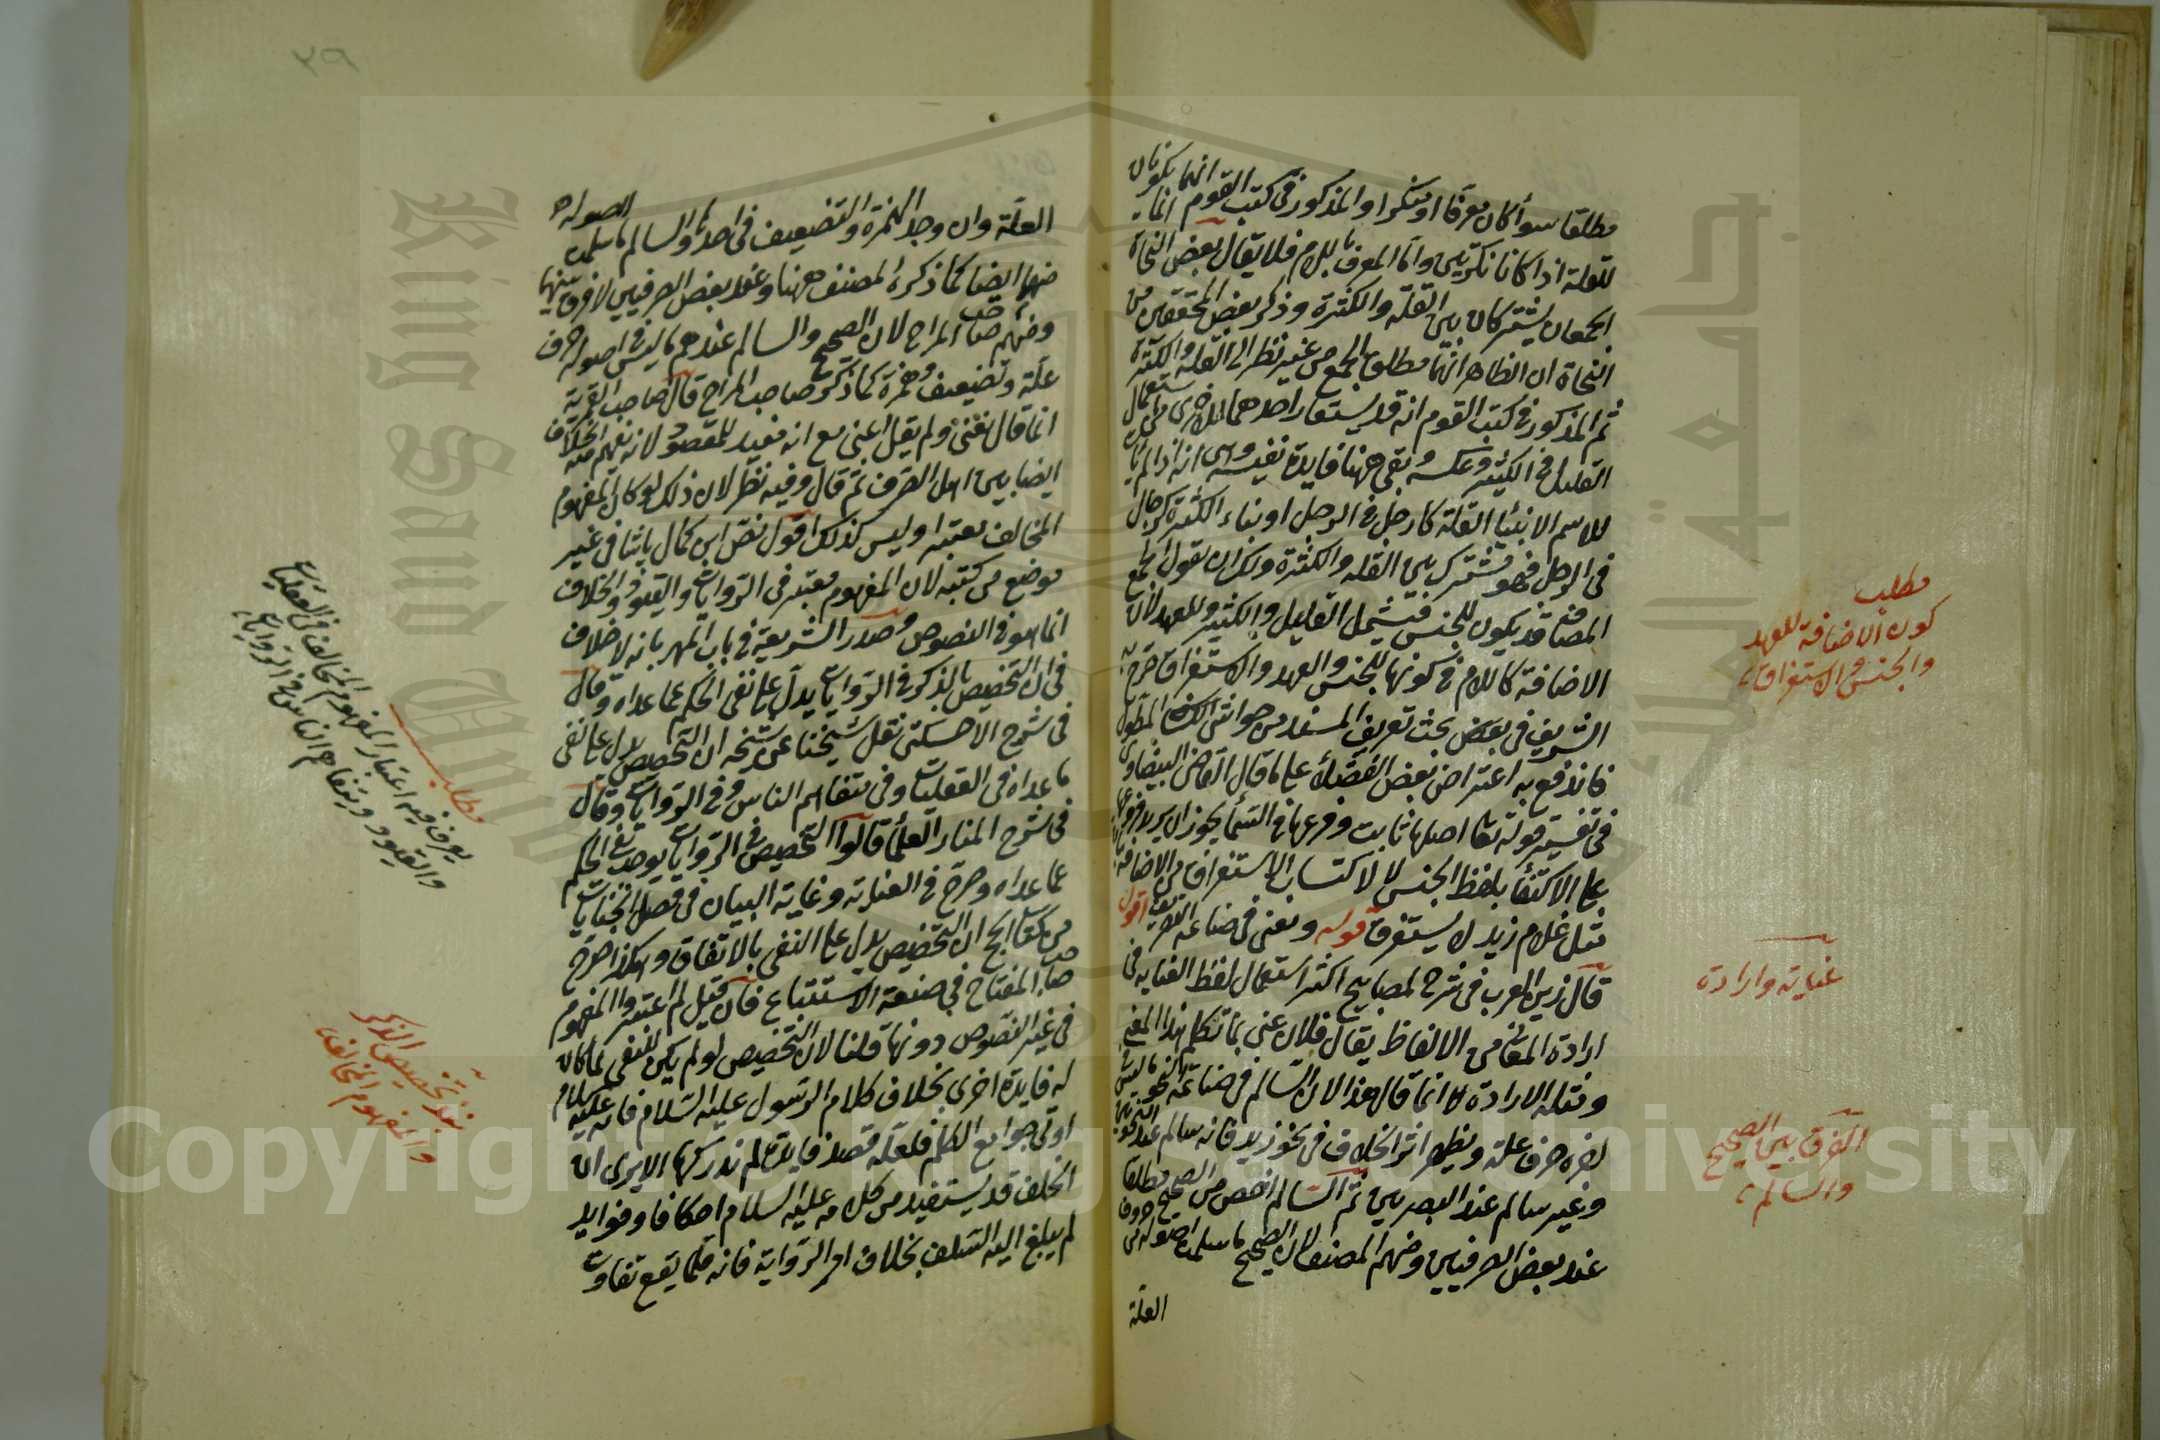 مطلقا سواء كان معرفا او منكرا والمذكور في كتب القوم انهما يكونان
للقلة اذا كانا نكرتين واما المعرف باللام فلا يقال بعض النحاة
الجمعان يشتركان بين القلة والكثرة وذكر بعض المحققين من
النحاة ان الظاهر انهما مطلق الجمع من غير نظر الى القلة والكثرة
ثم المذكور في كتب القوم انه قد يستعار احدهما للاخرى
القليل في الكثير وعكسه وبقى ههنا فايدة نفيسة وهي انه اذا لم يأت
للاسم الا بناء القلة كارجل في الرجل او بناء الكثرة كرجال
في الرجل فهو مشترك بين القلة والكثرة ولك ان تقول الجمع
المضاف قد يكون للجنس فيشمل القليل والكثير وللعهد لان
الاضافة كاللام في كونها للجنس والعهد والاستغراق صرح به
الشريف في بعض بحث تعريف المسند من حواشي المطول
فاندفع به اعتراض بعض الفضلاء على ما قال القاضي البيضاوي
في تفسير قوله تعالى اصلها ثابت وفرعها في السماء يجوز ان يريد فروعها
على الاكتفاء بلفظ الجنس لاكتساب الاستغراق من الاضافة
مثل غلام زيد لا يستغرق قوله ونعنى في صناعة التصريف اقول
قال زين العرب في شرح المصابيح اكثر استعمال لفظ العناية في
ارادة المعاني من الالفاظ يقال فلان عنى بما تكلم هذا المعنى
ومثله الارادة انما قال هذا لان السالم في صناعة النحو ما ليس
اخره حرف علة ويظهر اثر الخلاف في نحو زيد فانه سالم عند
وغير سالم عند البصريين ثم السالم اخص من الصحيح مطلقا
عند بعض الصرفيين ومنهم المصنف لان الصحيح ما سلمت اصوله من حروف
العلة
مطلب
كون الاضافة للعهد
والجنس والاستغراق
عناية وارادة
الفرق بين الصحيح
والسالم
٢٩
العلة وان وجد الهمزة والتضعيف في احدها والسالم ما سلمت اصوله
منهما ايضا كما ذكره المصنف ههنا وعند بعض الصرفيين لا فرق بينهما
ومنهم صاحب المراح لان الصحيح والسالم عندهم ما ليس في اصوله حرف
علة وتضعيف وهمزة كما ذكره صاحب المراح قال صاحب القرية
انما قال نعنى ولم يقل اعنى مع انه مفيد للمقصود لانه يفهم منه الخلاف
ايضا بين اهل الصرف ثم قال وفيه نظر لان ذلك لو كان المفهوم
المخالف معتبرا وليس كذلك اقول نص ابن كمال باشا في غير
موضع من كتبه لان المفهوم معتبر في الروايات والقيود والخلاف
انما هو في النصوص وصدر الشريعة في باب المهر بانه لا خلاف
في ان التخصيص بالذكر في الروايات يدل على نفى الحكم عما عداه وقال
في شرح الاخسيكتى نقل شيخنا عن شيخه ان التخصيص يدل على نفى
ما عداه في العقليات وفي متفاهم الناس وفي الروايات وقال
في شرح المنار العلماء قالوا التخصيص في الروايات يوجب نفى الحكم
عما عداه وصرح في العناية وغاية البيان في فصل الجنايات
من كتاب الحج ان التخصيص يدل على النفى بالاتفاق وهكذا صرح
صاحب المفتاح في صنعة الاستتباع فان قيل لم اعتبروا المفهوم
في غير النصوص دونها قلنا لان التخصيص لو لم يكن للنفى لما كان
له فايدة اخرى بخلاف كلام الرسول عليه السلام فانه عليه السلام
اوتى جوامع الكلم فلعله قصد فايدة لم ندركها الا يرى ان
الخلف قد يستفيد من كلامه عليه السلام احكاما وفوايد
لم يبلغ اليه السلف بخلاف امر الرواية فانه قلما يقع تفاوت
مطلب
يعرف فيه اعتبار المفهوم المخالف في العقليات
والقيود وتفاهم الناس وفي الروايات
تخصيص الذكر
والمفهوم المخالف
King Saud University
جامعة الملك سعود
Copyright © King Saud University